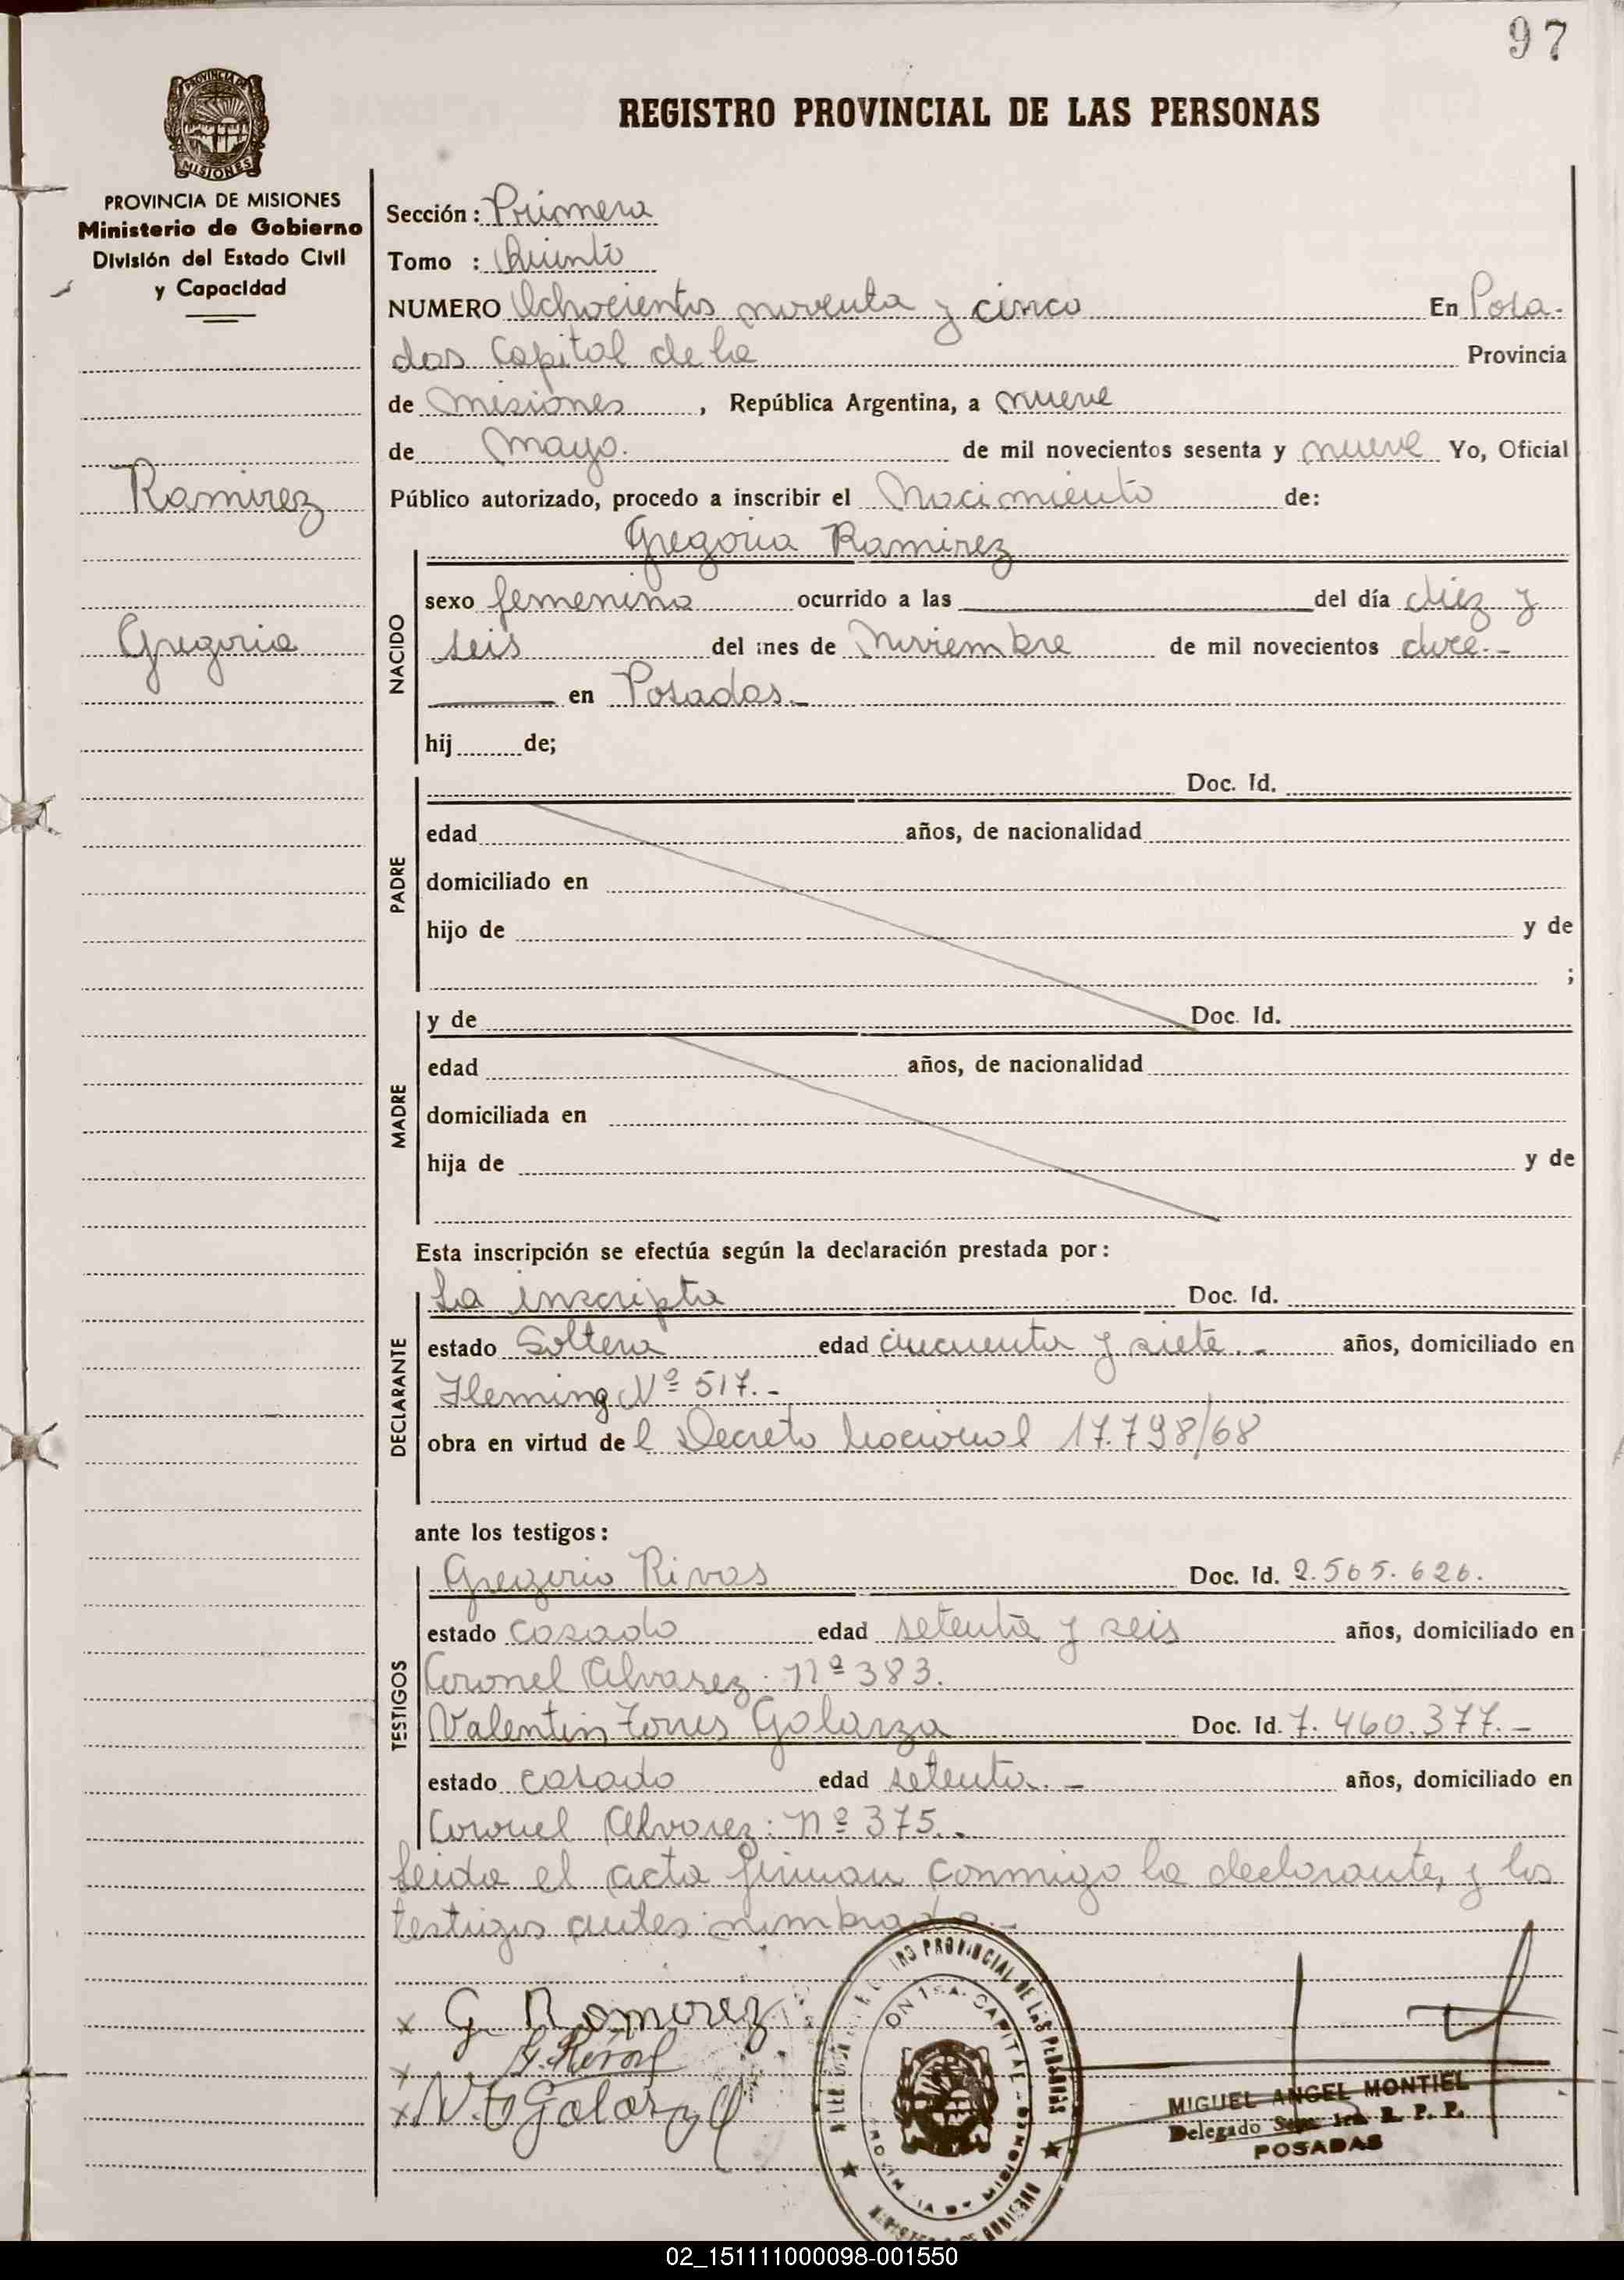 97
REGISTRO PROVINCIAL DE LAS PERSONAS
PROVINCIA DE MISIONES
MISIONES
PROVINCIA DE MISIONES
Ministerio de Gobierno
División del Estado Civil
y Capacidad
Ramirez
Gregoria
Sección: Primera
Tomo : Quinto
NUMERO Ochocientos noventa y cinco En Posa-
das Capital de la Provincia
de Misiones, República Argentina, a nueve
de Mayo. de mil novecientos sesenta y nueve Yo, Oficial
Público autorizado, procedo a inscribir el Nacimiento de:
Gregoria Ramirez
NACIDO
sexo femenino ocurrido a las del día diez y
seis del mes de Noviembre de mil novecientos doce.-
en Posadas.-
hij de;
PADRE
Doc. Id.
edad años, de nacionalidad
domiciliado en
hijo de y de
;
MADRE
y de Doc. Id.
edad años, de nacionalidad
domiciliada en
hija de y de
Esta inscripción se efectúa según la declaración prestada por:
DECLARANTE
La inscripta Doc. Id.
estado Soltera edad cincuenta y siete.- años, domiciliado en
Fleming Nº 517.-
obra en virtud del Decreto Nacional 17.798/68
ante los testigos:
TESTIGOS
Gregorio Rivas Doc. Id. 2.565.626.
estado casado edad setenta y seis años, domiciliado en
Coronel Alvarez: nº 383.
Valentin Torres Golarza Doc. Id. 7.460.377.-
estado casado edad setenta.- años, domiciliado en
Coronel Alvarez: nº 375.-
Leida el acta firman conmigo la declarante, y los
testigos antes nombrados.-
x G. Ramirez
x G. Rivas
x V. T. Golarza
PROVINCIAL DE LAS PERSONAS
CAPITAL
MIGUEL ANGEL MONTIEL
Delegado Secc. 1ra. R. P. P.
POSADAS
02_151111000098-001550